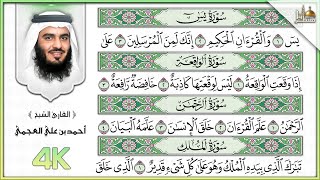 سُورَةُ يسٓ
يسٓ ١ وَالْقُرْءَانِ الْحَكِيمِ ٢ إِنَّكَ لَمِنَ الْمُرْسَلِينَ ٣
سُورَةُ الْوَاقِعَةِ
إِذَا وَقَعَتِ الْوَاقِعَةُ ١ لَيْسَ لِوَقْعَتِهَا كَاذِبَةٌ ٢ خَافِضَةٌ رَّافِعَةٌ ٣
سُورَةُ الرَّحْمَٰن
الرَّحْمَٰنُ ١ عَلَّمَ الْقُرْءَانَ ٢ خَلَقَ الْإِنسَٰنَ ٣ عَلَّمَهُ الْبَيَانَ ٤
سُورَةُ الْمُلْكِ
تَبَٰرَكَ الَّذِي بِيَدِهِ الْمُلْكُ وَهُوَ عَلَىٰ كُلِّ شَيْءٍ قَدِيرٌ ١ الَّذِي خَلَقَ
القارئ الشيخ
أحمد بن علي العجمي
4K